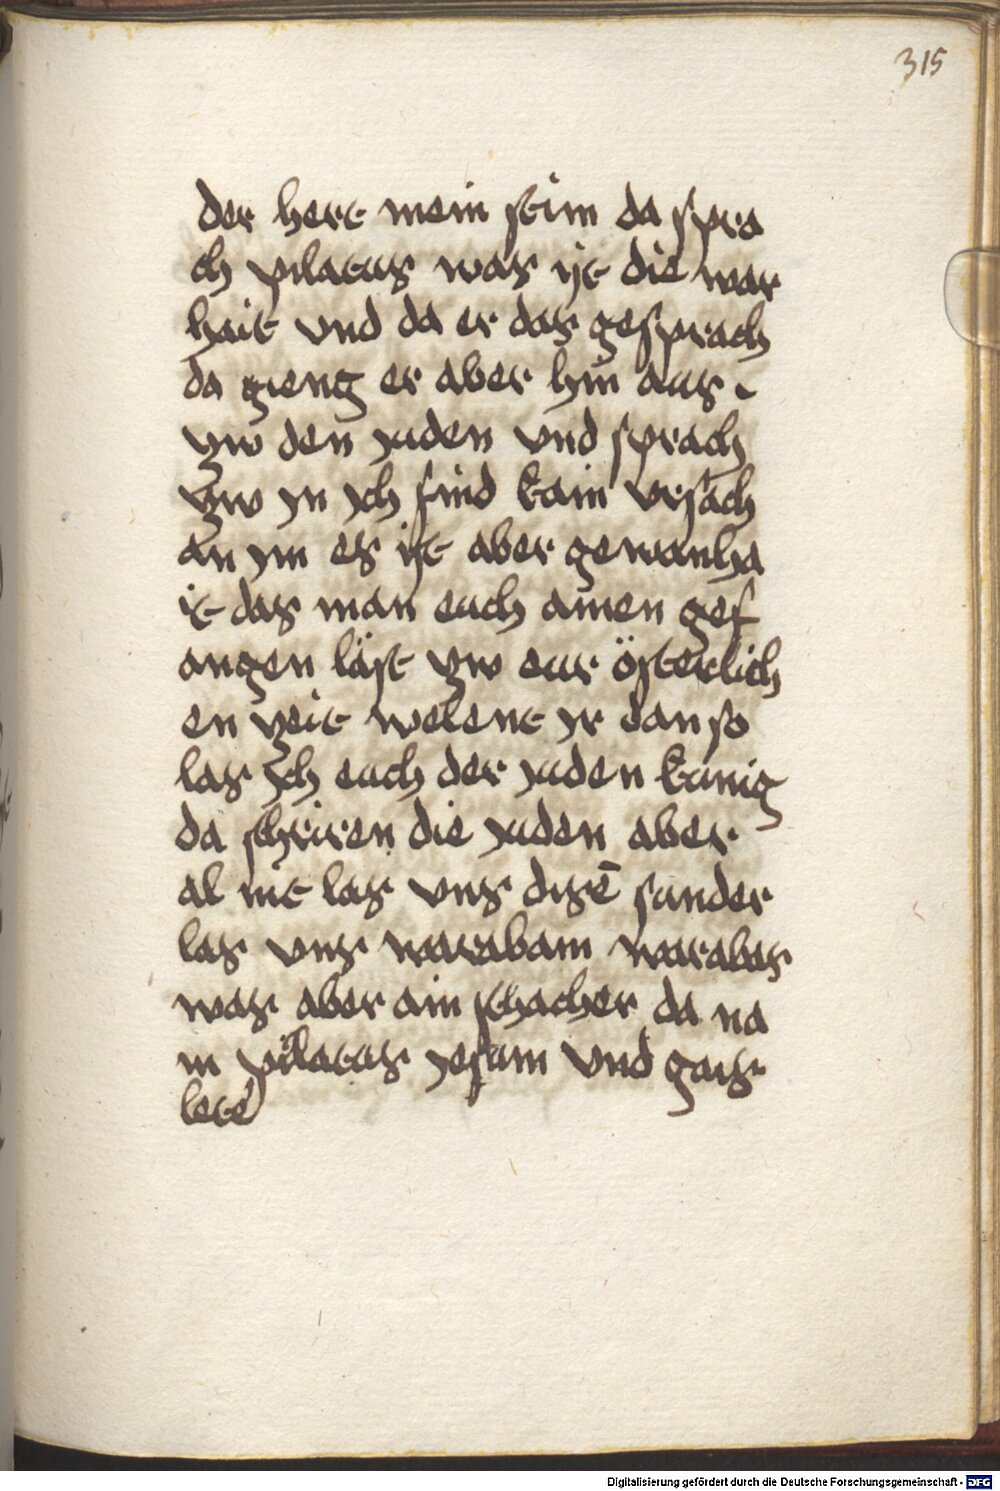 315
der hert mein stim da spra
ch pilatus was ist die war
hait vnd da er das gesprach
da gieng er aber hin aus
zw den juden vnd sprach
zw yn ych find kain vrsach
an ym es ist aber gewanha
it das man euch ainen gef
angen läst zw eur österlich
en zeit welent yr dan so
las ych euch der juden kunig
da schriren die juden aber
al nit las vns disē sunder
las vns warabam warabas
was aber ain schacher da na
m pilatus yesum vnd gais
lete
Digitalisierung gefördert durch die Deutsche Forschungsgemeinschaft - DFG